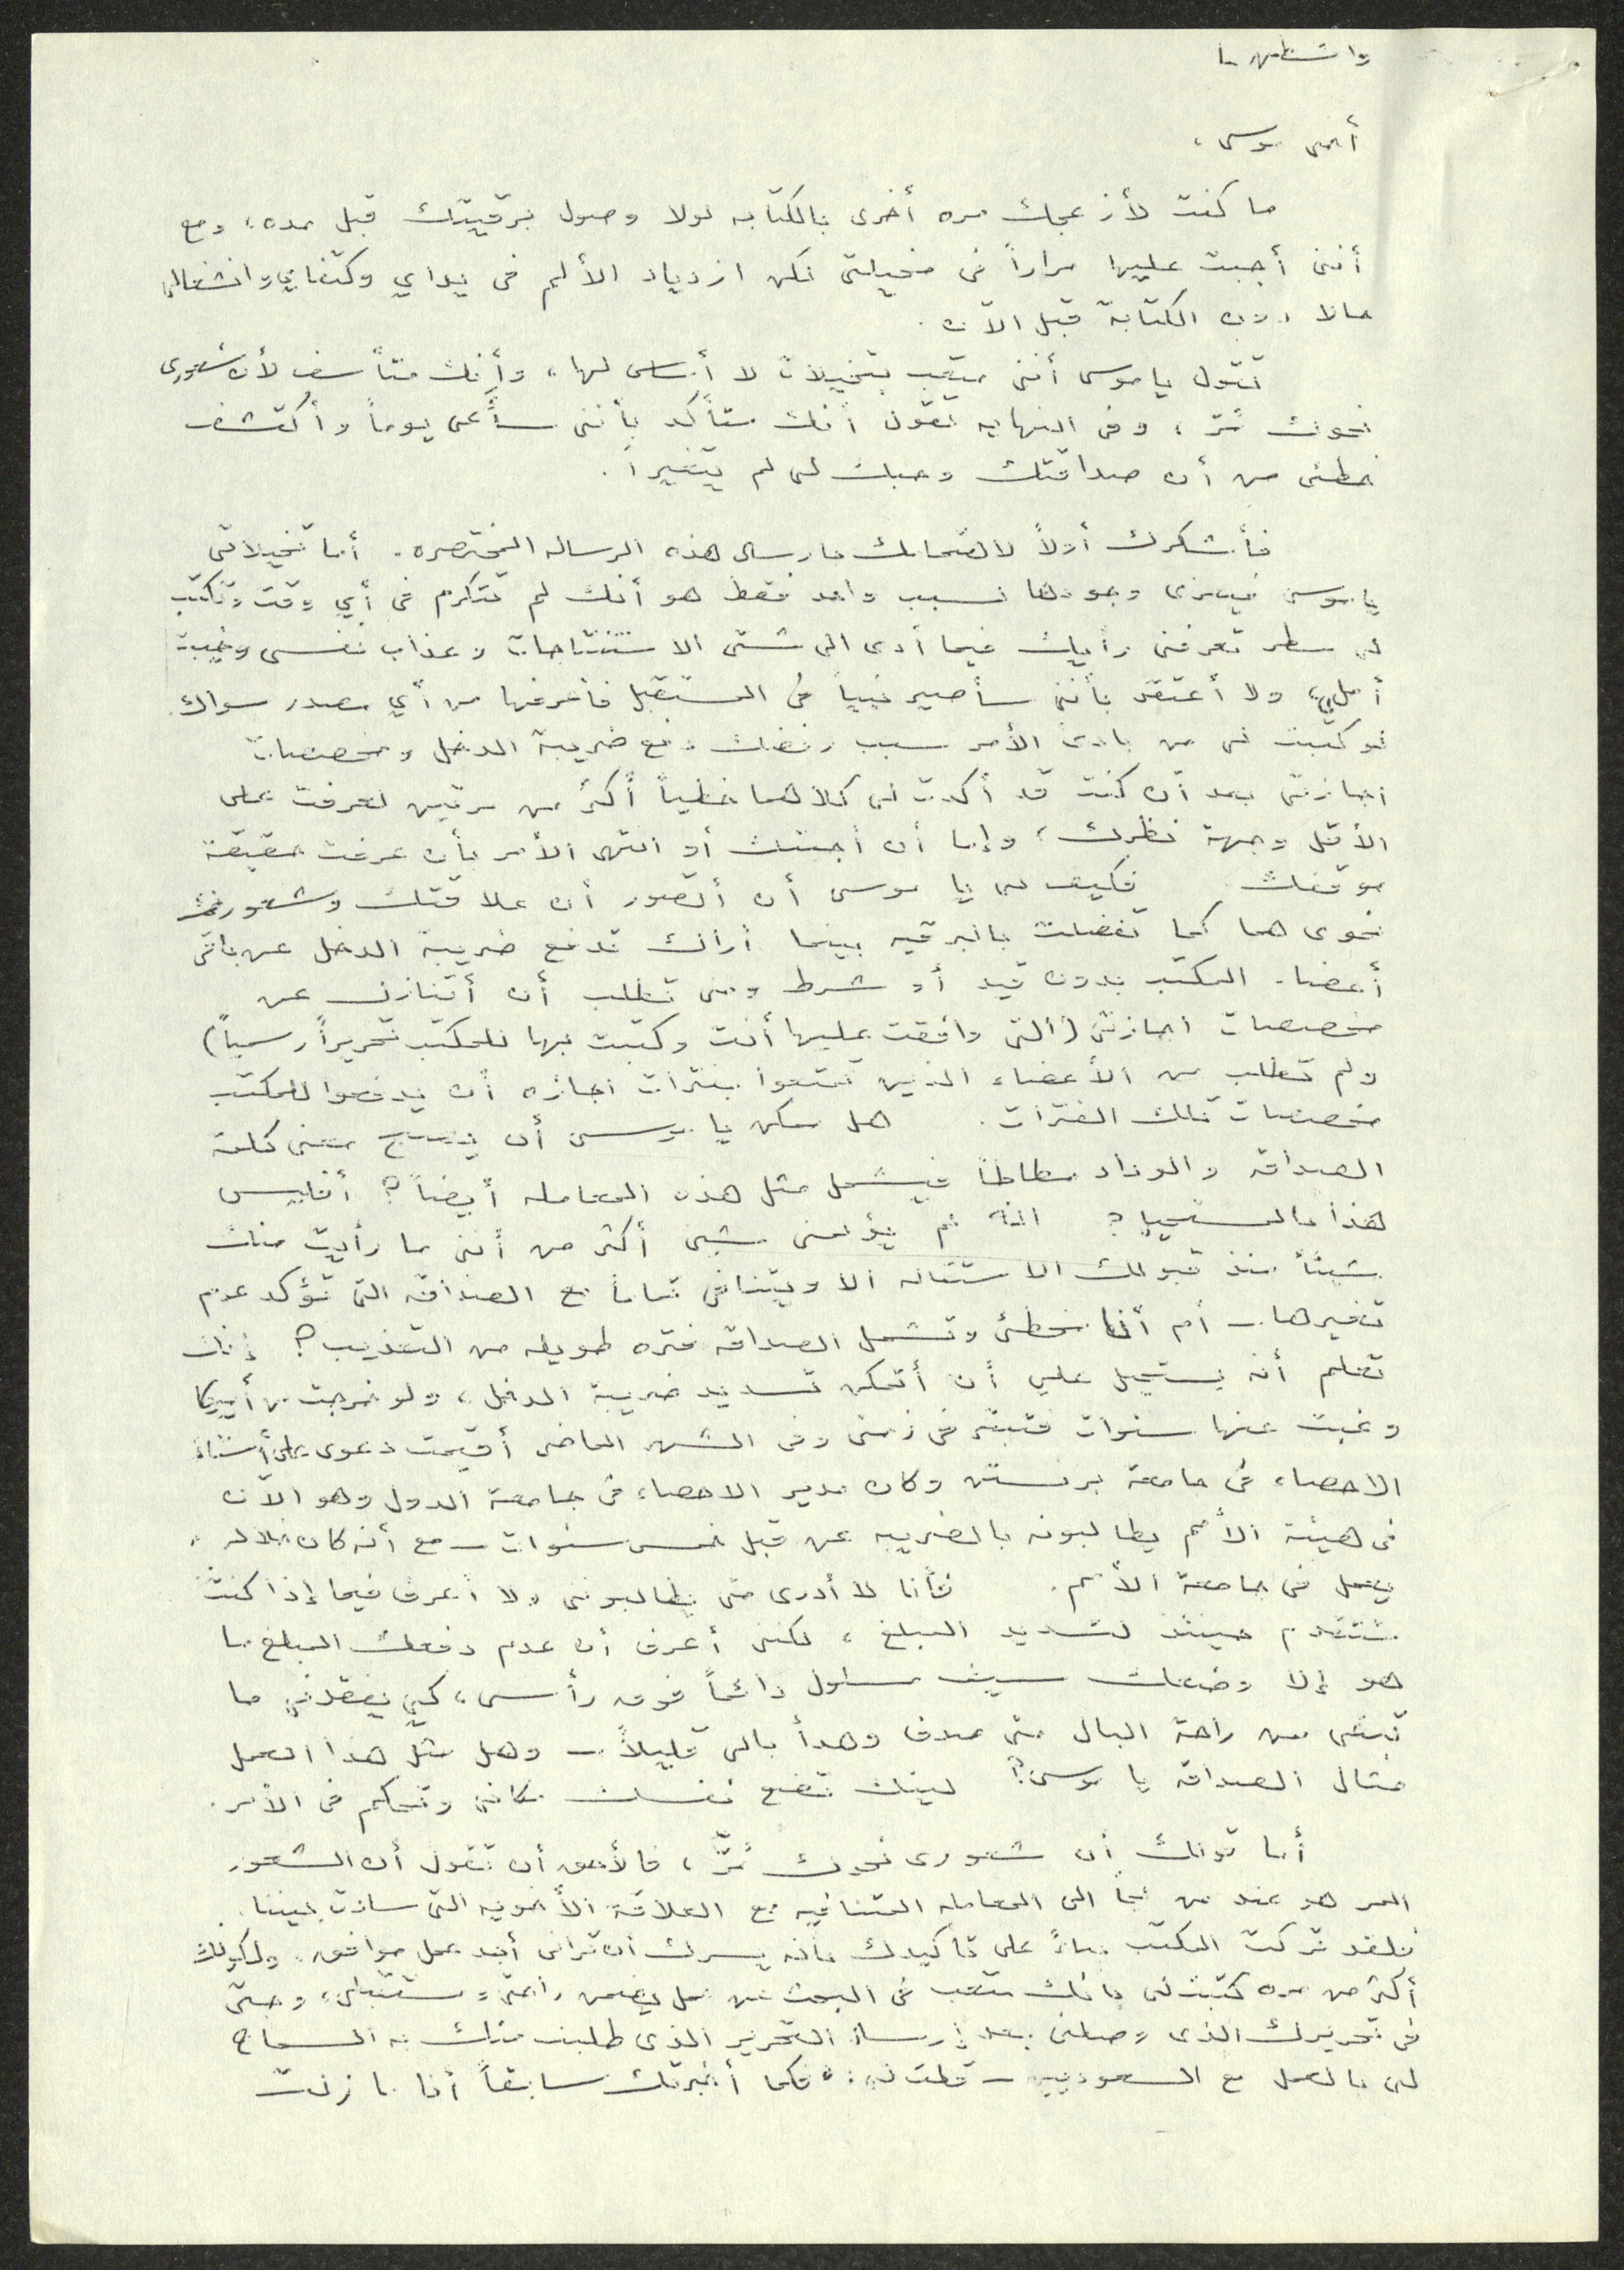 واشنطن -
أخي موسى ،
ما كنت لأزعجك مره أخرى بالكتابه لولا وصول برقيتك قبل مده ، ومع
أنني أجبت عليها مراراً في مخيلتي لكن ازدياد الألم في يداي وكتفاي وانشغالي
حالا دون الكتابة قبل الآن .
تقول يا موسى أنني متعب بتخيلات لا أساس لها ، وأنك متأسف لأن شعوري
نحوك مُرّ ، وفي النهايه تقول أنك متأكد بأنني سأعى يوماً وأكتشف
خطئى من أن صداقتك وحبك لي لم يتغيرا .
فأشكرك أولاً لاهتمامك بارسال هذه الرساله المختصره . أما تخيلاتي
يا موسى فيعزى وجودها لسبب واحد فقط هو أنك لم تتكرم في أي وقت وتكتب
لي سطر تعرفني رأيك فيما أدى الى شتى الاستنتاجات وعذاب نفسى وخيبت
أملي ، ولا أعتقد بأنني سأصير نبياً في المستقبل فأعرفها من أي مصدر سواك
لو كتبت لي من بادئ الأمر سبب رفضك دفع ضريبة الدخل ومخصصات
اجازتي بعد أن كنت قد أكدت لي كلاهما خطياً أكثر من مرتين لعرفت على
الأقل وجهة نظرك ، وإما أن أجبتك أو انتهى الأمر بأن عرفت حقيقة
موقفك فكيف لي يا موسى أن أتصور أن علاقتك وشعورك
نحوى هما كما تفضلت بالبرقيه بينما أراك تدفع ضريبة الدخل عن باقي
أعضاء المكتب بدون قيد أو شرط ومني تطلب أن أتنازل عن
مخصصات اجازتي (التي وافقت عليها أنت وكتبت بها للمكتب تحريراً رسمياً)
ولم تطلب من الأعضاء الذين تمتعوا بفترات اجازه أن يدفعوا للمكتب
مخصصات تلك الفترات . هل ممكن يا موسى أن يصبح معنى كلمة
الصداقه والوداد مطاطاً فيشمل مثل هذه المعامله أيضاً ؟ أفليس
هذا بالمستحيل ؟ انه لم يؤلمنى شيئ أكثر من أنني ما رأيت منك
شيئاً منذ قبولك الاستقاله الا ويتنافى تماماً مع الصداقه التي تؤكد عدم
تغيرها - أم أنا مخطئ وتشمل الصداقه فتره طويله من التعذيب ؟ إنك
تعلم أنه يستحيل علي أن أتمكن تسديد ضريبة الدخل ، ولو خرجت من أميركا
وغبت عنها سنوات فتبقى في ذمتي وفي الشهر الماضى أقيمت دعوى على أستاذ
الاحصاء في جامعة برنستن وكان مدير الاحصاء في جامعة الدول وهو الآن
في هيئة الأمم يطالبونه بالضريبه عن قبل خمس سنوات - مع أنه كان خلاله
يعمل في جامعة الأمم . فأنا لا أدرى متى يطالبونى ولا أعرف فيما إذا كنت
حينئذ لتسديد المبلغ ، لكنى أعرف أن عدم دفعك المبلغ ما
هو إلا وضعك سيف مسلول دائماً فوق رأسى ، كي يفقدني ما
تبقى من راحة البال متى صدف وهدأ بالي قليلاً - وهل مثل هذا العمل
مثال الصداقه يا موسى ؟ ليتك تضع نفسك مكاني وتحكم في الأمر .
أما قولك أن شعورى نحوك مُرّ ، فالأحق أن تقول أن الشعور
المر هو عند من لجأ الى المعامله المتنافيه مع العلاقة الأخويه التي سادت بيننا .
فلقد تركت المكتب بناءً على تأكيدك بانه يسرك أن تراني أجد عمل موافق .
أكثر من مره كتبت لي بانك متعب في البحث عن عمل يضمن راحتي ومستقبلي ، وحتى
في تحريرك الذي وصلني بعد إرسال التحرير الذي طلبت منك به السماح
لي بالعمل مع السعوديين - قلت لي : " فكما أخبرتك سابقاً أنا ما زلت